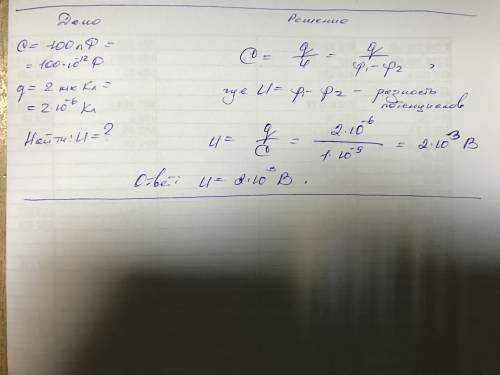 Дано
C = 100 пФ =
= 100·10⁻¹² Ф
q = 2 мк Кл =
= 2·10⁻⁶ Кл
Найти: U = ?
Решение
C = q/U = q/(φ₁ - φ₂) ,
где U = φ₁ - φ₂ - разность
потенциалов
U = q/C = 2·10⁻⁶/1·10⁻⁹ = 2·10⁻³ В
Ответ: U = 2·10⁻³ В .